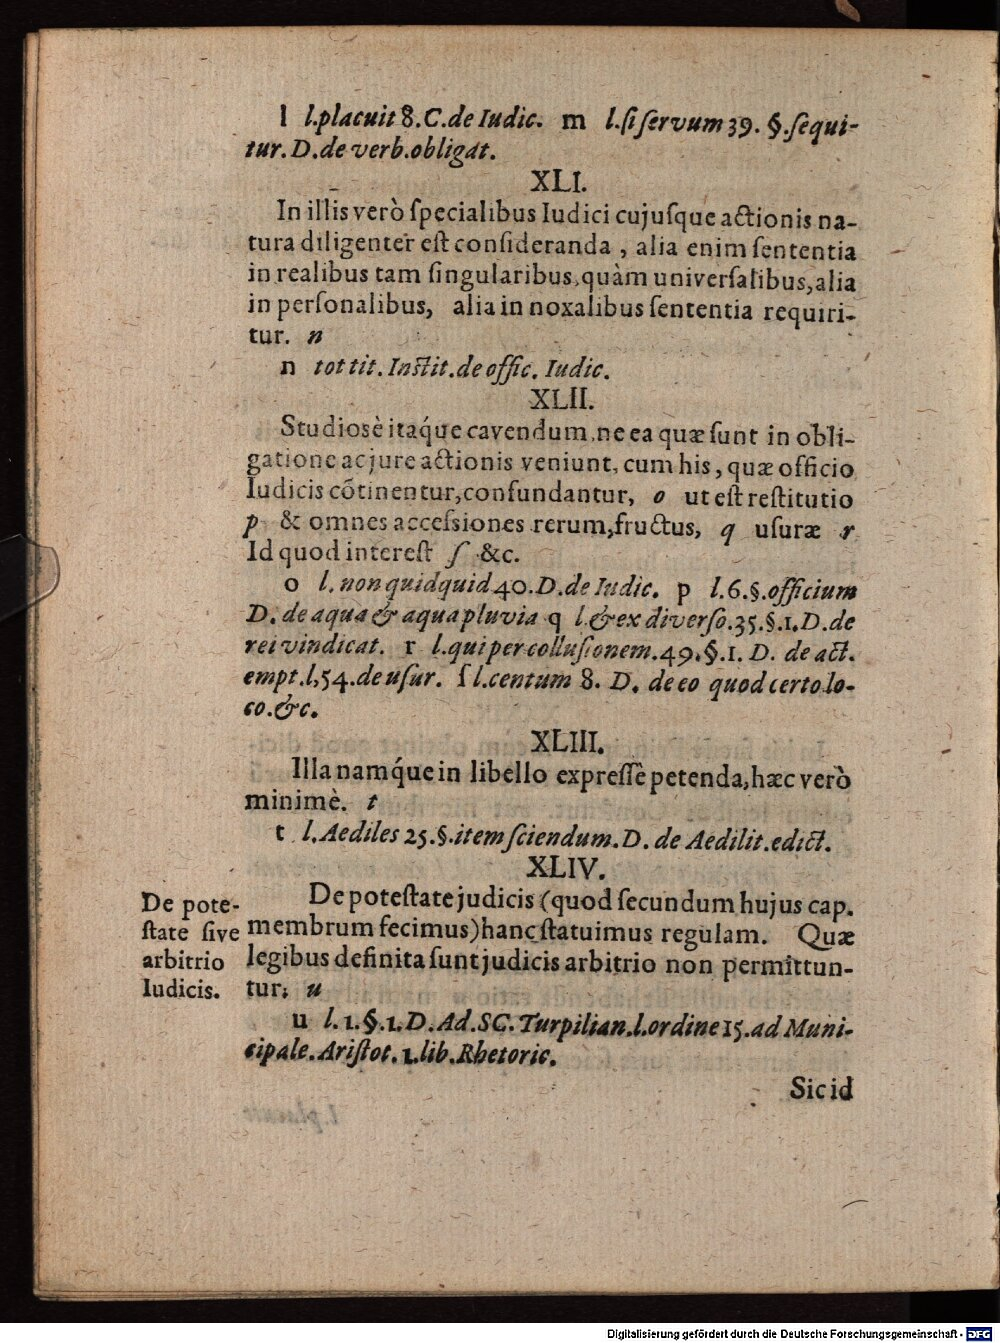 l l.placuit 8.C.de Iudic. m l.ſi ſervum 39. §.ſequi-
tur. D.de verb.obligat.
XLI.
In illis verò ſpecialibus Iudici cujuſque actionis na-
tura diligenter eſt conſideranda , alia enim ſententia
in realibus tam ſingularibus,quàm univerſalibus,alia
in perſonalibus, alia in noxalibus ſententia requiri-
tur. n
n tot tit. Inſtit.de offic. Iudic.
XLII.
Studiosè itaq́ue cavendum,ne ea quæ ſunt in obli-
gatione ac jure actionis veniunt, cum his, quæ officio
Iudicis cõtinentur,confundantur, o ut eſt reſtitutio
p & omnes acceſsiones rerum,fructus, q uſuræ r
Id quod intereſt ſ &c.
o l. non quidquid 40.D.de Iudic. p l.6.§.officium
D. de aqua & aqua pluvia q l.& ex diverſo.35.§.1.D.de
rei vindicat. r l.qui per colluſionem.49.§.1. D. de act.
empt.l,54.de uſur. ſ l.centum 8. D. de eo quod certo lo-
co.&c.
XLIII.
Illa namq́ue in libello expreſſè petenda,hæc verò
minimè. t
t l.Aediles 25.§.item ſciendum.D. de Aedilit.edict.
XLIV.
De pote-
ſtate ſive
arbitrio
Iudicis.
De poteſtate judicis (quod ſecundum hujus cap.
membrum fecimus)hanc ſtatuimus regulam. Quæ
legibus definita ſunt judicis arbitrio non permittun-
tur. u
u l.1.§.1.D.Ad.SC.Turpilian.l.ordine 15.ad Muni-
cipale.Ariſtot.1.lib.Rhetoric.
Sic id
Digitalisierung gefördert durch die Deutsche Forschungsgemeinschaft - DFG